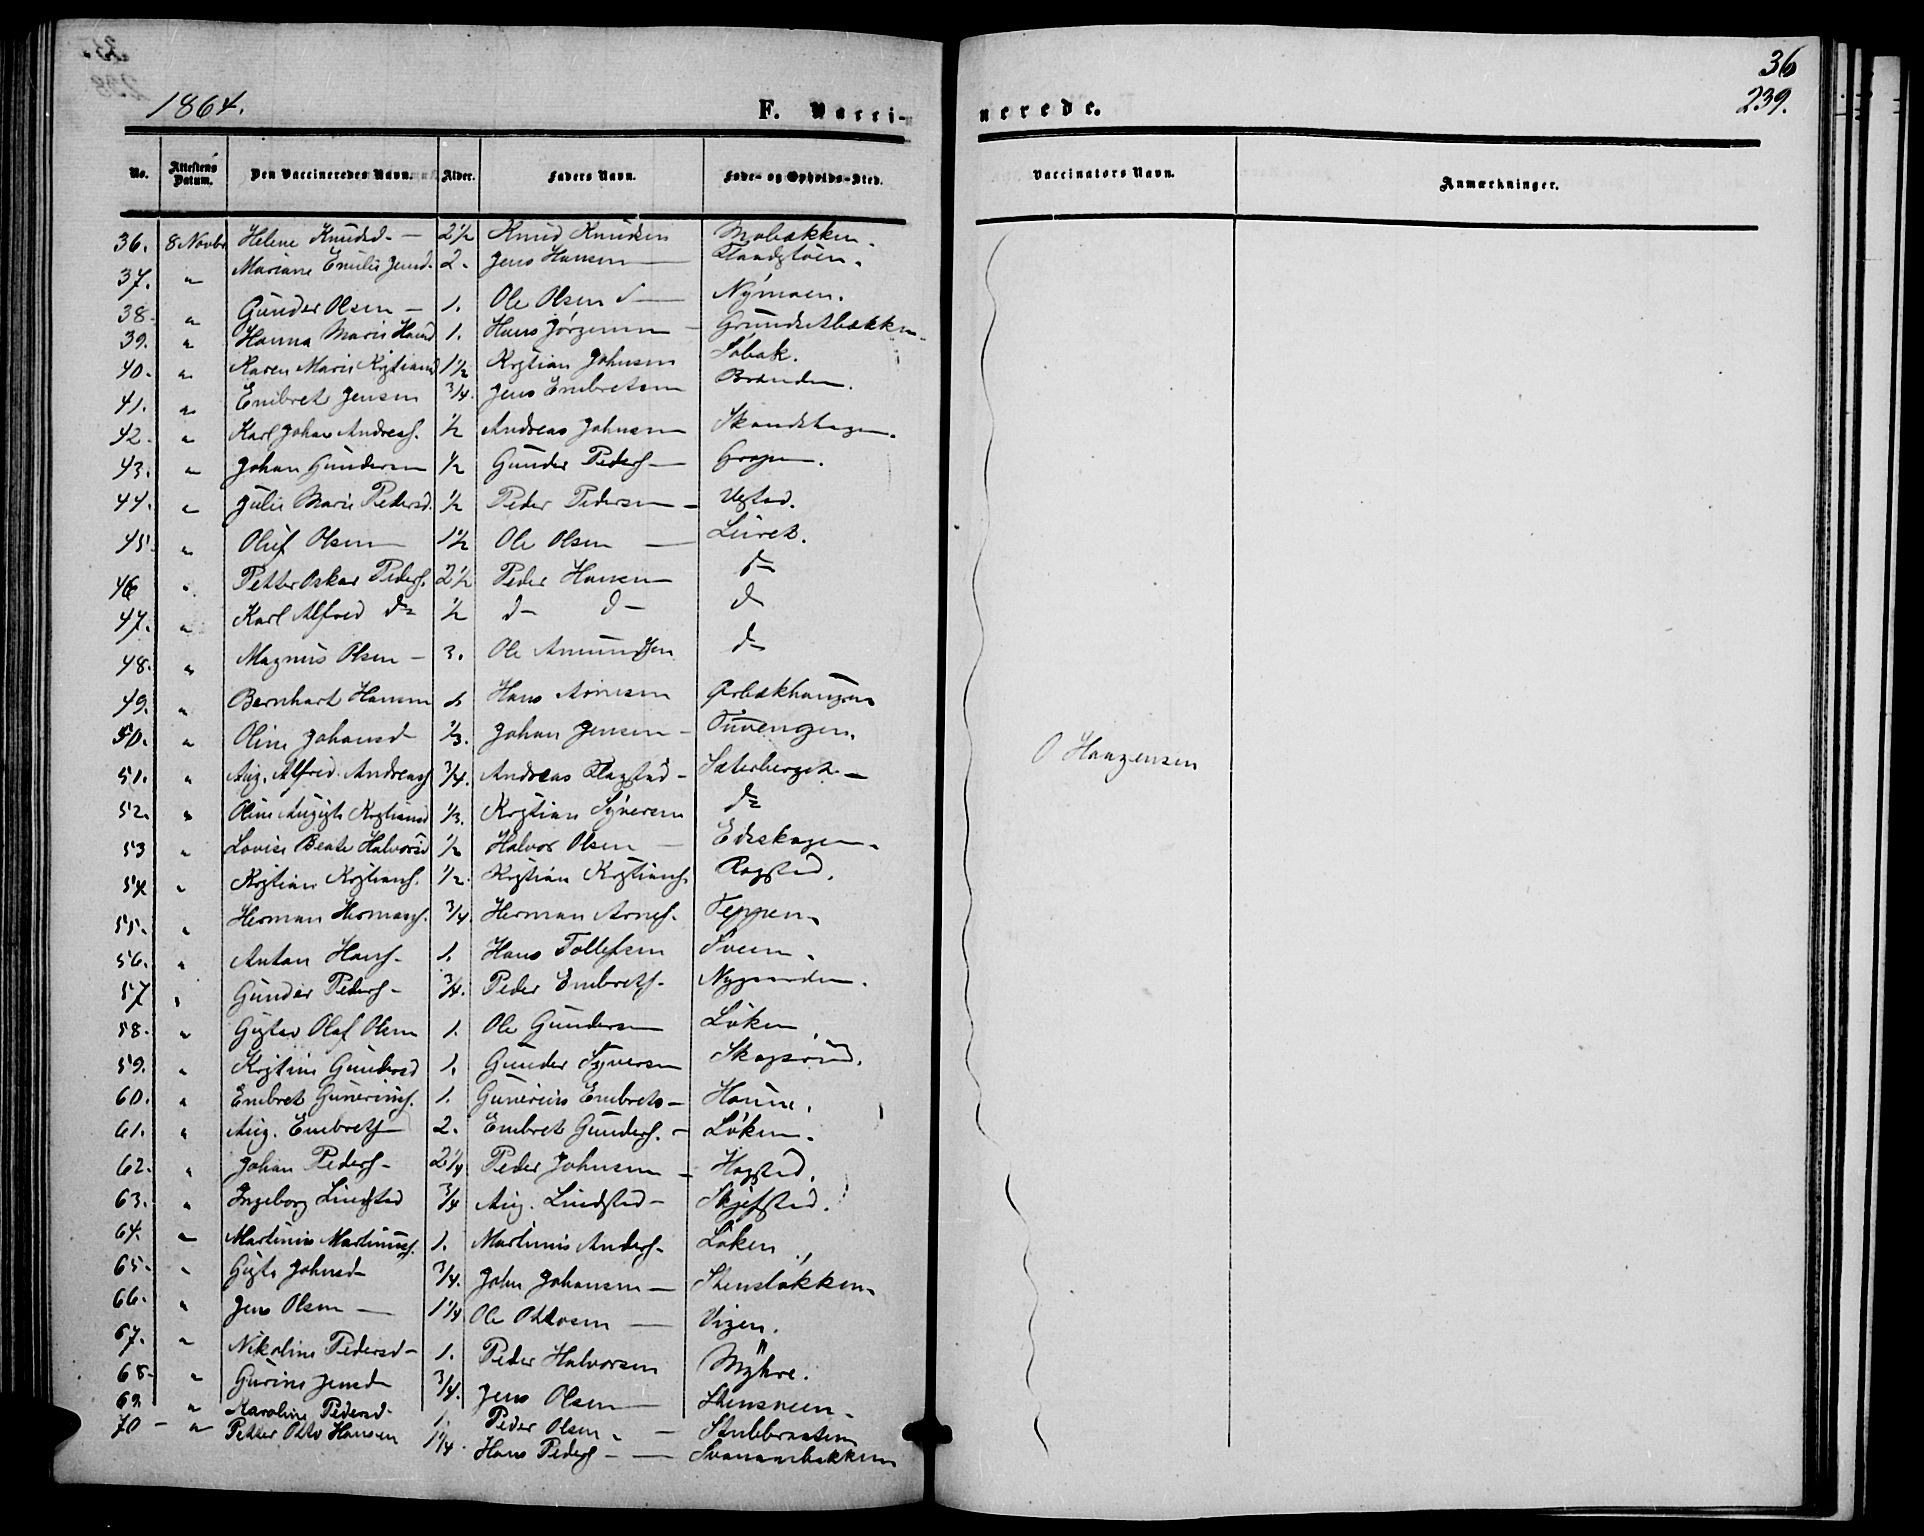 36
239.
1864.
F. Vaccinerede.
No. Attestens Datum. Den Vaccineredes Navn. Alder. Faders Navn. Føde- og Opholds-Sted. Vaccinators Navn. Anmærkninger.
36. 8 Novbr Helene Knudsd. — 2 1/2 Knud Knudsen Mobækken.
37. " Mariane Emilie Jensd. 2. Jens Hansen — Flaadstøen.
38. " Gunder Olsen — 1. Ole Olsen — Nýmoen.
39. " Hanna Marie Hansd 1. Hans Jørgensen — Grundsetbækken
40. " Karen Marie Kristiansd 1 1/2 Kristian Johnsen Søbak.
41. " Embret Jensen 3/4. Jens Embretsen Brænden.
42. " Karl Johan Andreass. 1/2 Andreas Johnsen Skandshagen.
43. " Johan Gundersen 1/2 Gunder Peders — Gropen.
44. " Julie Marie Pedersd. 1/2 Peder Pedersen — Ustad.
45. " Oluf Olsen — 1 1/2 Ole Olsen — Leiret.
46 " Petter Oskar Peders. 2 1/2 Peder Hansen — do
47. " Karl Alfred do 1/2 do do do
48. " Magnus Olsen — 3. Ole Amundsen do
49. " Bernhart Hansen Hans Arnesen Ørbækhaugen
50. " Oline Johansd 1/3. Johan Jensen — Tuvengen.
51. " Aug. Alfred. Andreass 3/4. Andreas Flagstad — Sæterberget —
52. " Oline Augusta Kristiansd 1/3. Kristian Syversen do
53 " Lovise Beate Halvorsd 1/2 Halvor Olsen — Edsskogen.
54 " Kristian Kristians. 1/2. Kristian Kristians. Rogstad.
55. " Herman Hermans. 3/4 Herman Arnes. Teppen.
56. " Anton Hans. 1. Hans Tollefsen Sveen.
57 " Gunder Peders — 3/4. Peder Embrets. Nygaarden.
58. " Gustav Olaf Olsen 1. Ole Gundersen Løken.
59. " Kristine Gundersd 1. Gunder Syversen Skogsrud.
60. " Embret Gunerius. 1. Gunerius Embrets — Hanne.
61. " Aug. Embrets — 2. Embret Gunders. — Løken.
62. " Johan Peders — 2 1/4 Peder Johnsen — Hagstad.
63. " Ingeborg Lindstad 3/4 Aug. Lindstad — Skjefstad.
64. " Martinius Martinius. 1. Martinius Anders. Løken.
65. " Gusta Johnsd — 3/4. John Johansen — Stensløkken.
66. " Jens Olsen — 1 1/4 Ole Ottosen — Vizen.
67. " Nikoline Pedersd — 1. Peder Halvorsen Myhre.
68. " Gurine Jensd 3/4. Jens Olsen — Stensveen.
69 " Karoline Pedersd. 1. Peder Olsen. — Stubbraaten
70 — " Petter Otto Hansen 1 1/4. Hans Peders — Svanaasbakken
O Haagensen